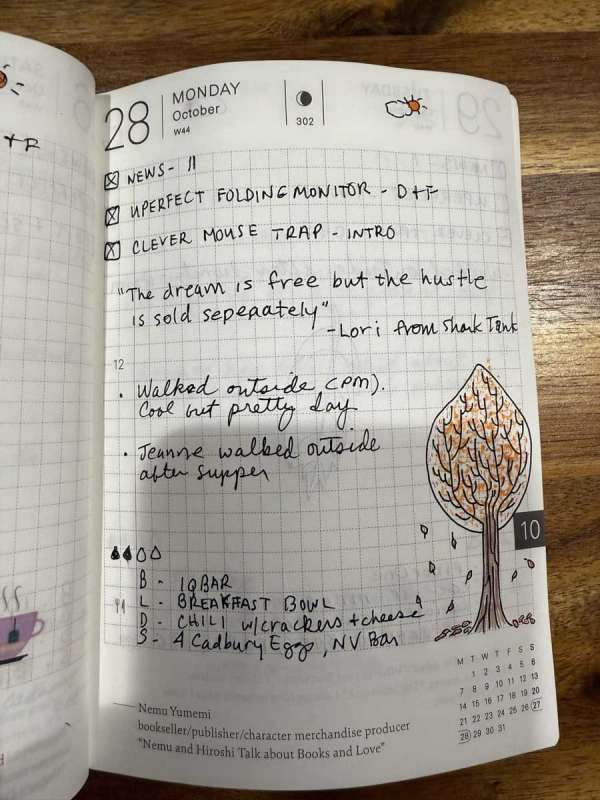 28
MONDAY
October
W44
302
NEWS - 11
UPERFECT FOLDING MONITOR - D+F
CLEVER MOUSE TRAP - INTRO
"The dream is free but the hustle
is sold seperately"
- Lori from Shark Tank
12
• Walked outside (pm).
Cool but pretty day
• Jeanne walked outside
after supper
10
B - IQBAR
L - BREAKFAST BOWL
D - CHILI w/crackers + cheese
S - 4 Cadbury Eggs, NV Bar
M T W T F S S
1 2 3 4 5 6
7 8 9 10 11 12 13
14 15 16 17 18 19 20
21 22 23 24 25 26 27
28 29 30 31
Nemu Yumemi
bookseller/publisher/character merchandise producer
"Nemu and Hiroshi Talk about Books and Love"